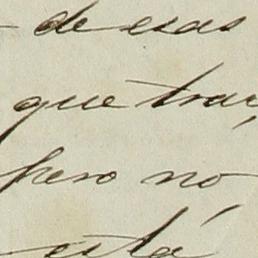 de esas
que trae
pero no
está